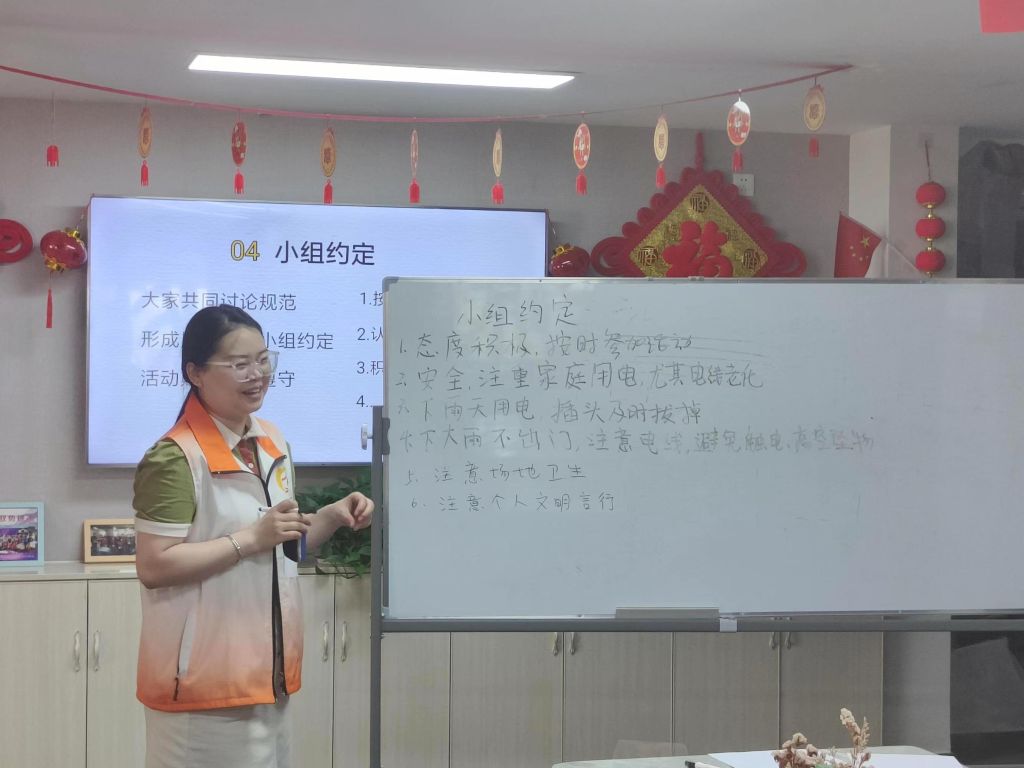 04 小组约定
大家共同讨论规范
形成 小组约定
活动 遵守
1.按
2.认
3.积
4.
小组约定
1. 态度积极,按时参加活动
2. 安全,注重家庭用电,尤其电线老化
3. 下雨天用电,插头及时拔掉
4. 下大雨不出门,注意电线,避免触电,高空坠物
5. 注意场地卫生
6. 注意个人文明言行
福